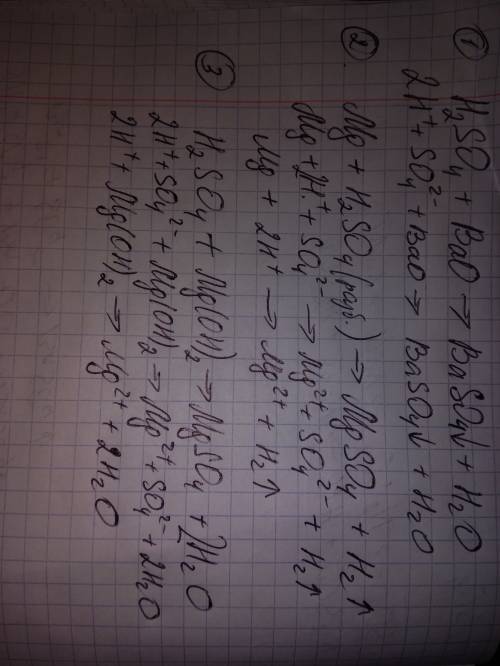 ① H₂SO₄ + BaO → BaSO₄↓ + H₂O
2H⁺ + SO₄²⁻ + BaO → BaSO₄↓ + H₂O
② Mg + H₂SO₄ (разб.) → MgSO₄ + H₂↑
Mg + 2H⁺ + SO₄²⁻ → Mg²⁺ + SO₄²⁻ + H₂↑
Mg + 2H⁺ → Mg²⁺ + H₂↑
③ H₂SO₄ + Mg(OH)₂ → MgSO₄ + 2H₂O
2H⁺ + SO₄²⁻ + Mg(OH)₂ → Mg²⁺ + SO₄²⁻ + 2H₂O
2H⁺ + Mg(OH)₂ → Mg²⁺ + 2H₂O